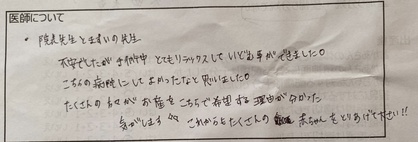 医師について
・院長先生と生まいの先生
不安でしたが 手術中 とてもリラックスして いどむ事ができました。
こちらの病院にしてよかったなと思いました。
たくさんの方々が お産をこちらで希望する理由が分かった
気がします これからもたくさんの 赤ちゃんをとりあげて下さい!!